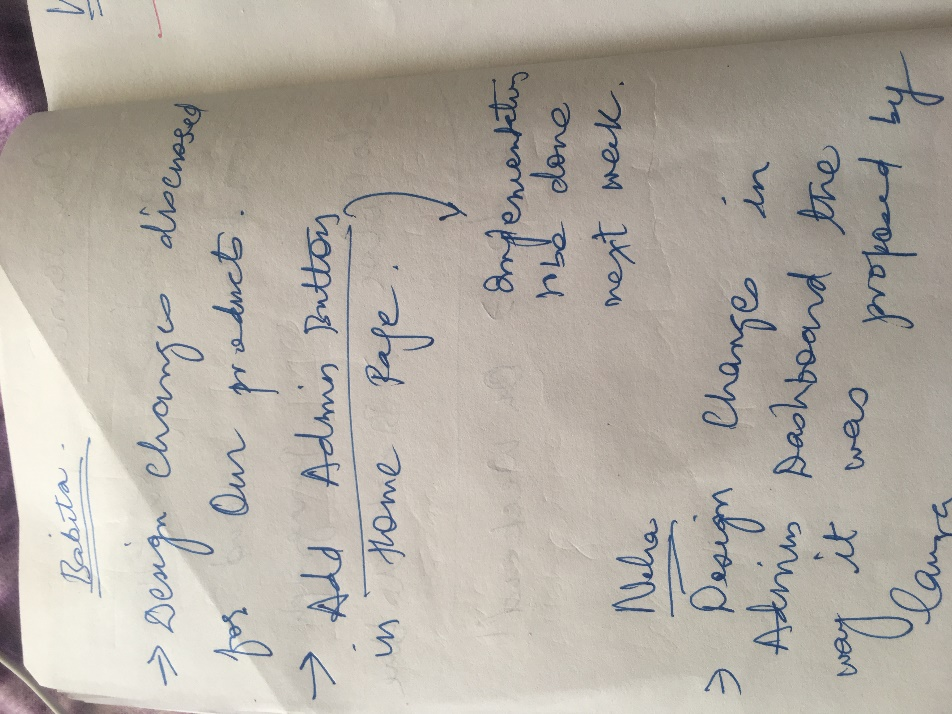 Babita.
→ Design changes discussed
for Our products.
→ Add Admin Button
in Home Page.
Implementation
to be done
next weak.
Neha
→ Design Change in
Admin Dashboard the
way it was proposed by